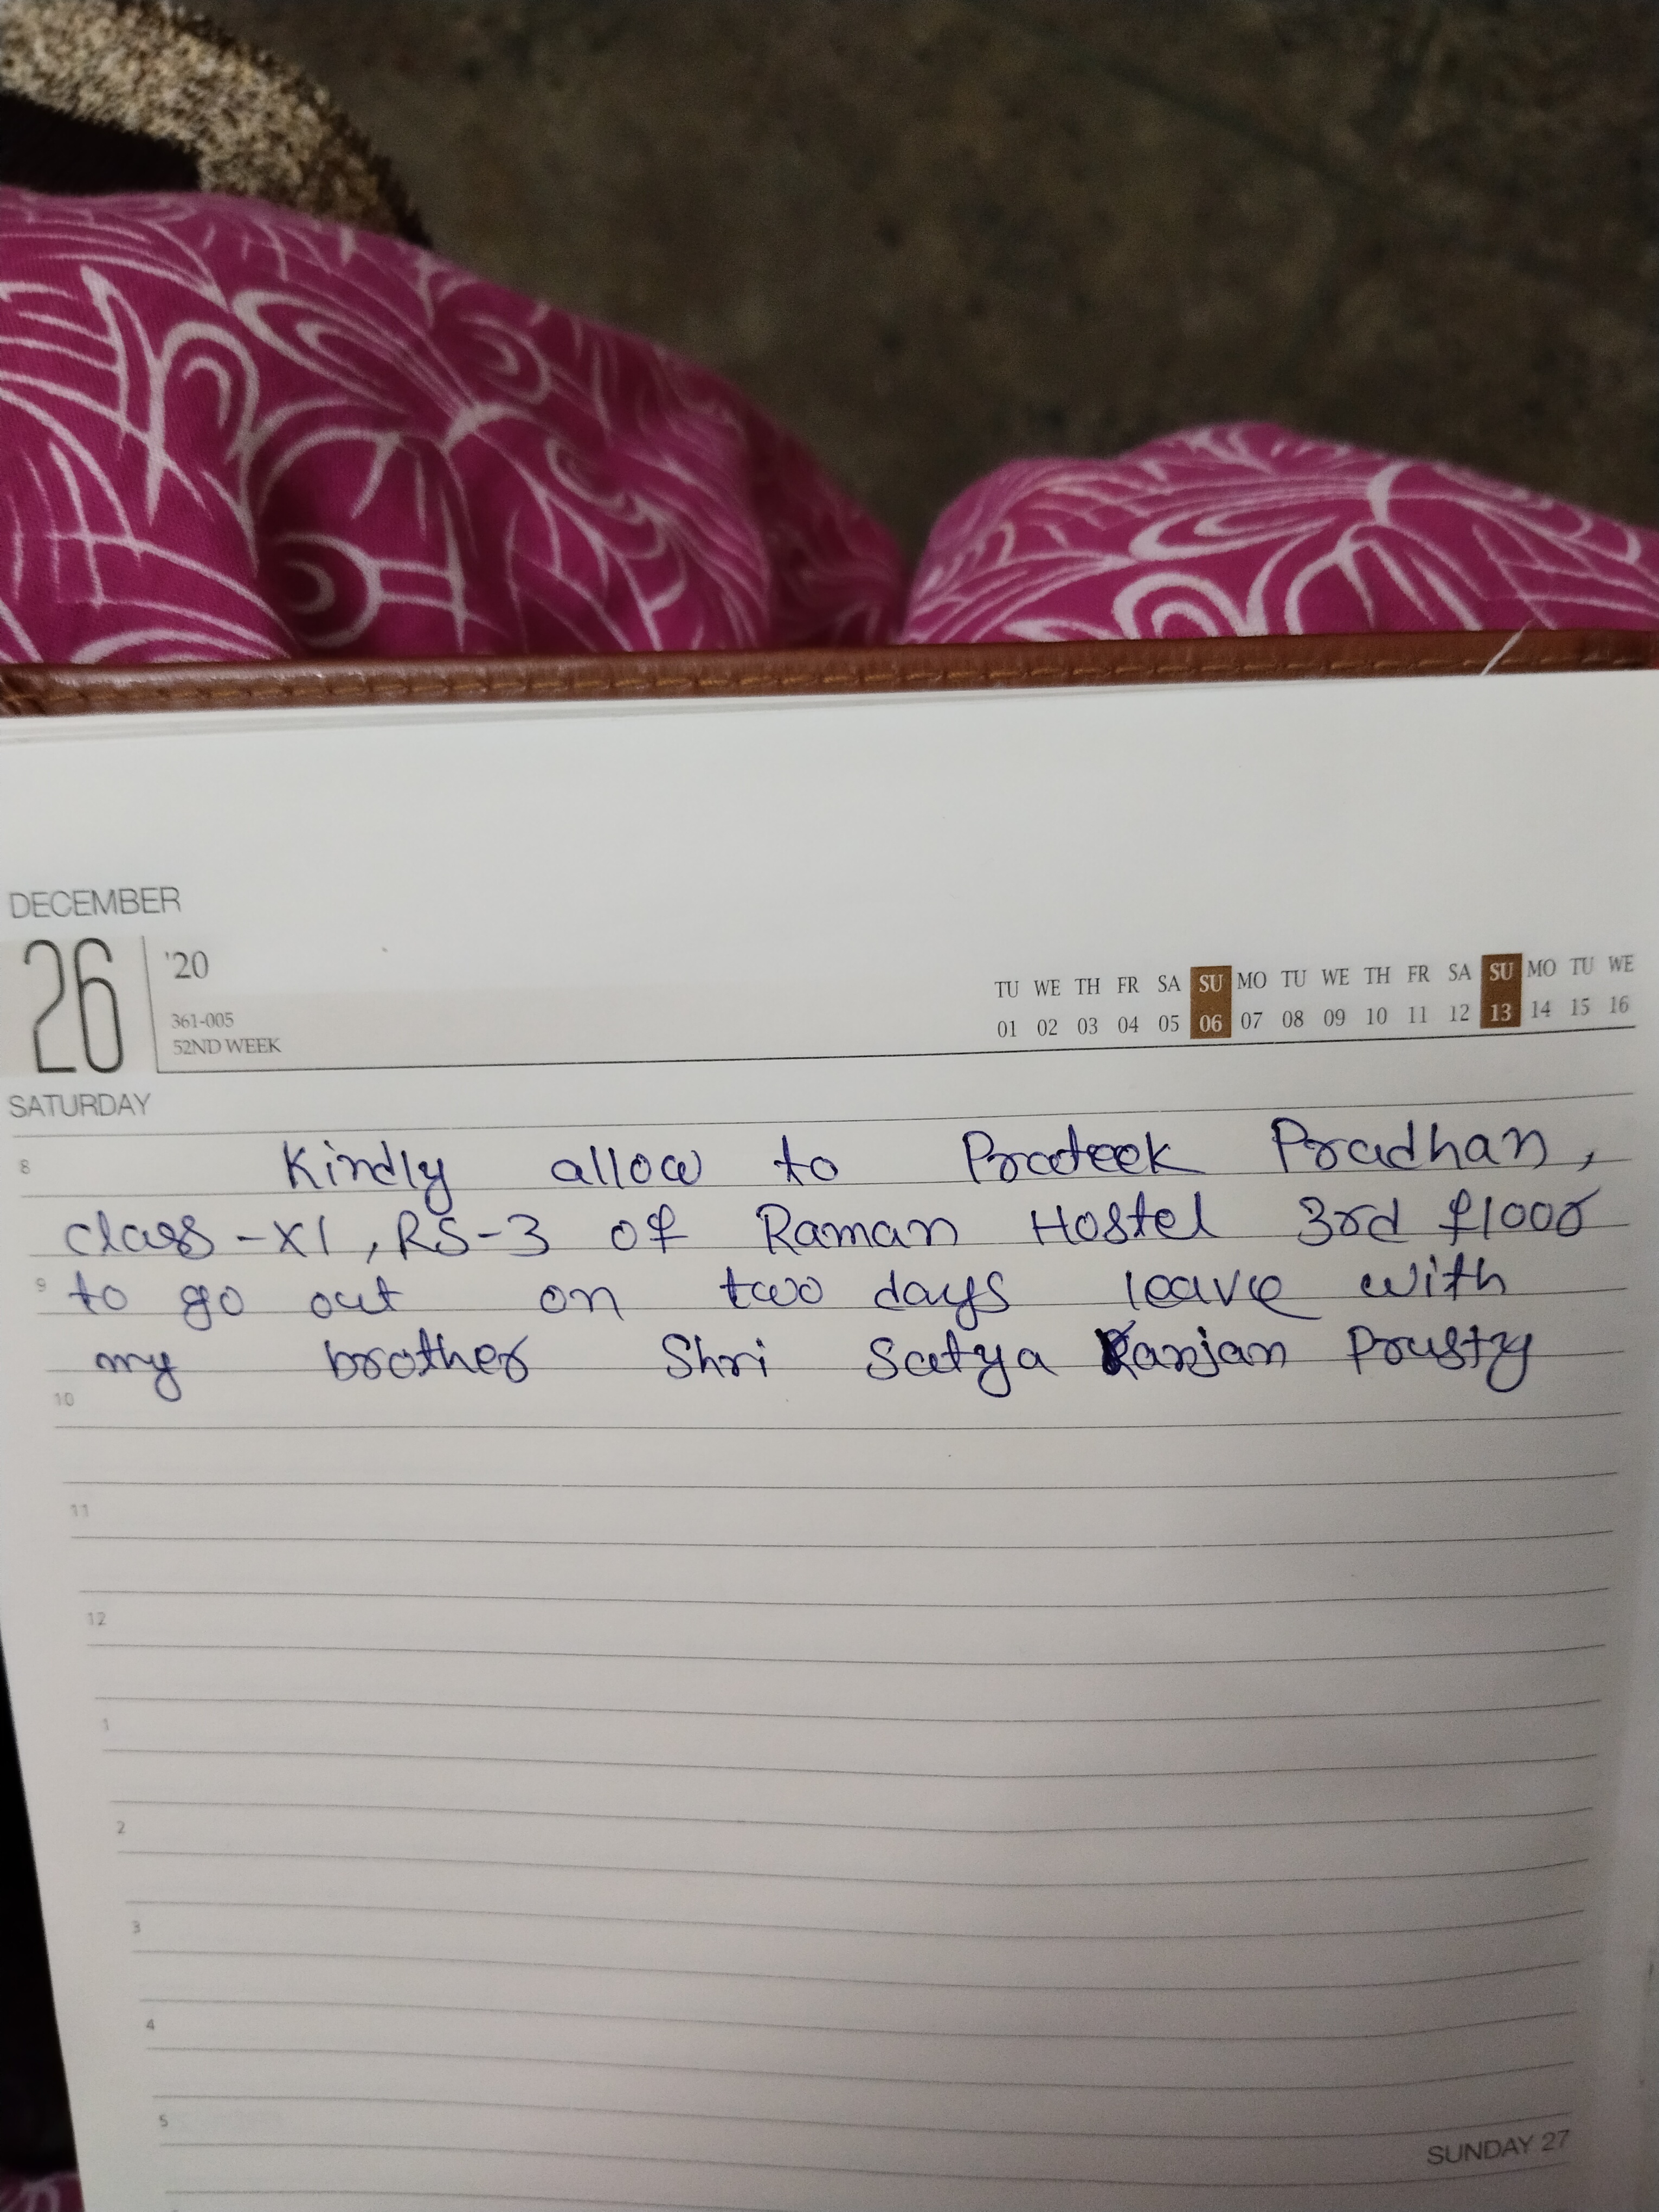 DECEMBER
26
'20
361-005
52ND WEEK
SATURDAY
TU WE TH FR SA SU MO TU WE TH FR SA SU MO TU WE
01 02 03 04 05 06 07 08 09 10 11 12 13 14 15 16
8
Kindly allow to Prateek Pradhan,
class-XI, RS-3 of Raman Hostel 3rd floor
9
to go out on two days leave with
my brother Shri Satya Ranjan Prusty
10
11
12
1
2
3
4
5
SUNDAY 27